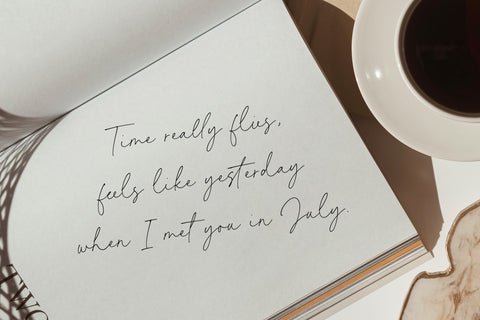 Time really flies,
feels like yesterday
when I met you in July.
TWO